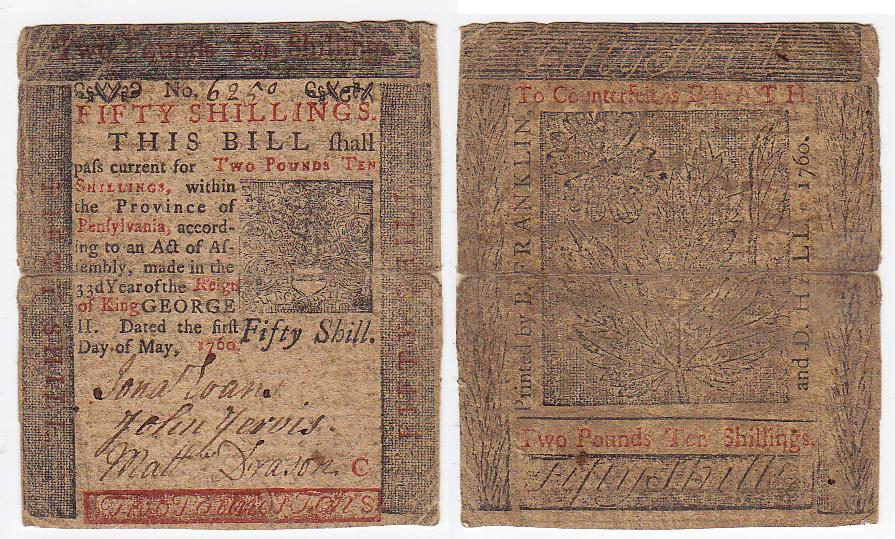 Two Pounds Ten Shillings
No. 6250
FIFTY SHILLINGS.
THIS BILL ſhall
paſs current for TWO POUNDS TEN
SHILLINGS, within
the Province of
Penſylvania, accord-
ing to an Act of Aſ-
ſembly, made in the
33d Year of the Reign
of King GEORGE
II. Dated the firſt
Day of May, 1760.
Fifty Shill.
John Jervis.
C
FIFTY SHILL
To Counterfeit is DEATH.
Printed by B. FRANKLIN,
and D. HALL, 1760.
Two Pounds Ten Shillings.
Fifty Shills